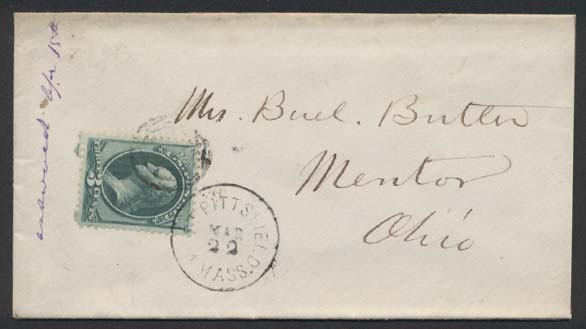 answered Apr 15th
Mrs. Buel. Butler
Mentor
Ohio
PITTSFIELD
MAR
22
MASS.